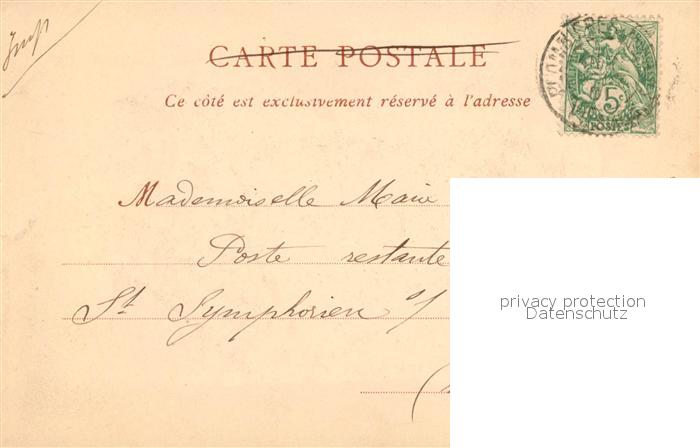 Imp
CARTE POSTALE
Ce côté est exclusivement réservé à l'adresse
PLOMBIÈRES
5c
POSTES
Mademoiselle Marie
Poste restante
St Symphorien s/
privacy protection
Datenschutz